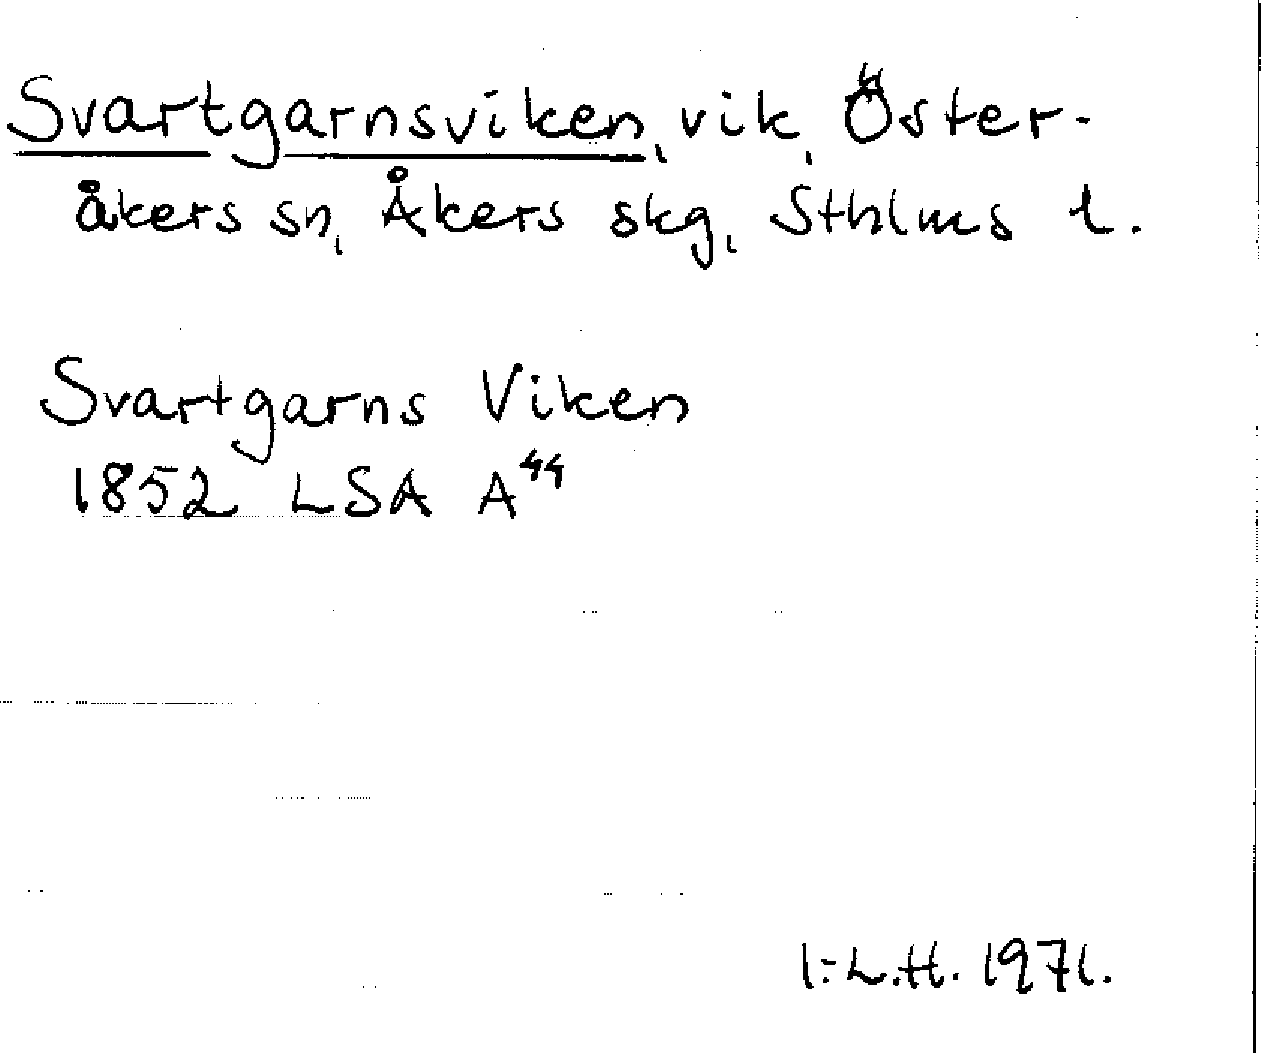 Svartgarnsviken, vik, Öster-
åkers sn, Åkers skg, Sthlms l.
Svartgarns Viken
1852 LSA A⁴⁴
I-L.H. 1971.